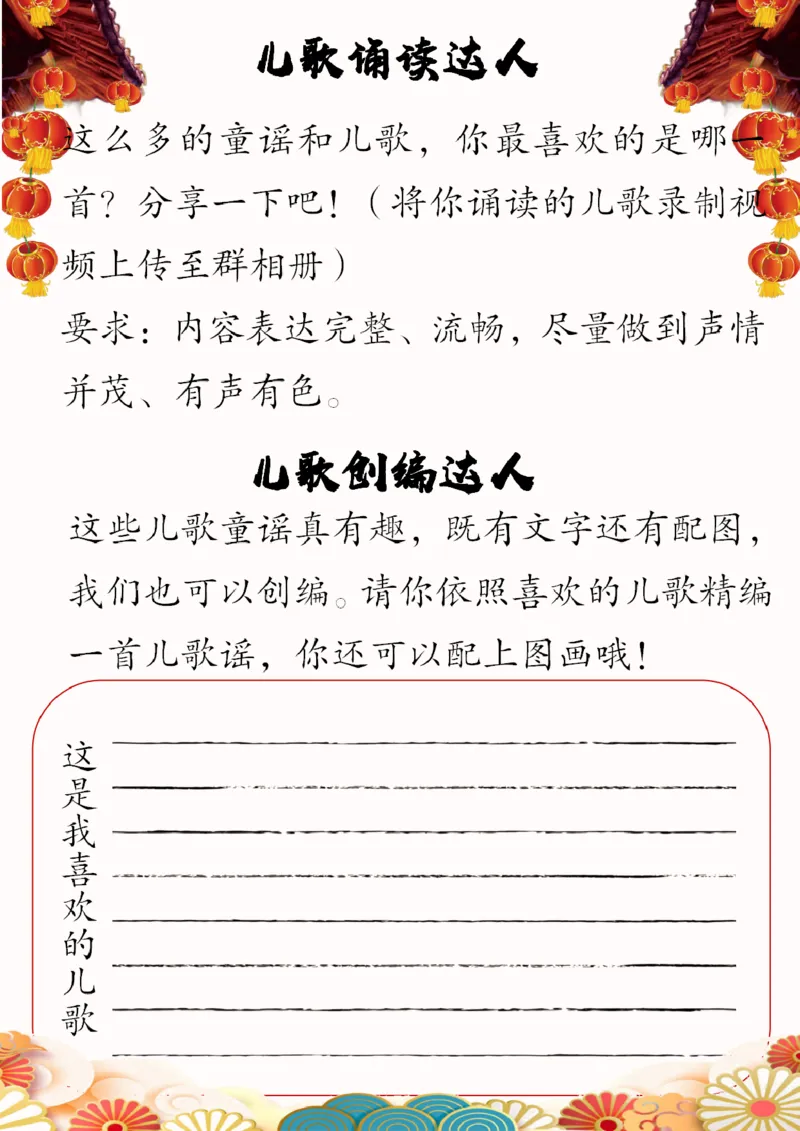 儿歌诵读达人
这么多的童谣和儿歌，你最喜欢的是哪一
首？分享一下吧！（将你诵读的儿歌录制视
频上传至群相册）
要求：内容表达完整、流畅，尽量做到声情
并茂、有声有色。
儿歌创编达人
这些儿歌童谣真有趣，既有文字还有配图，
我们也可以创编。请你依照喜欢的儿歌精编
一首儿歌谣，你还可以配上图画哦！
这是我喜欢的儿歌